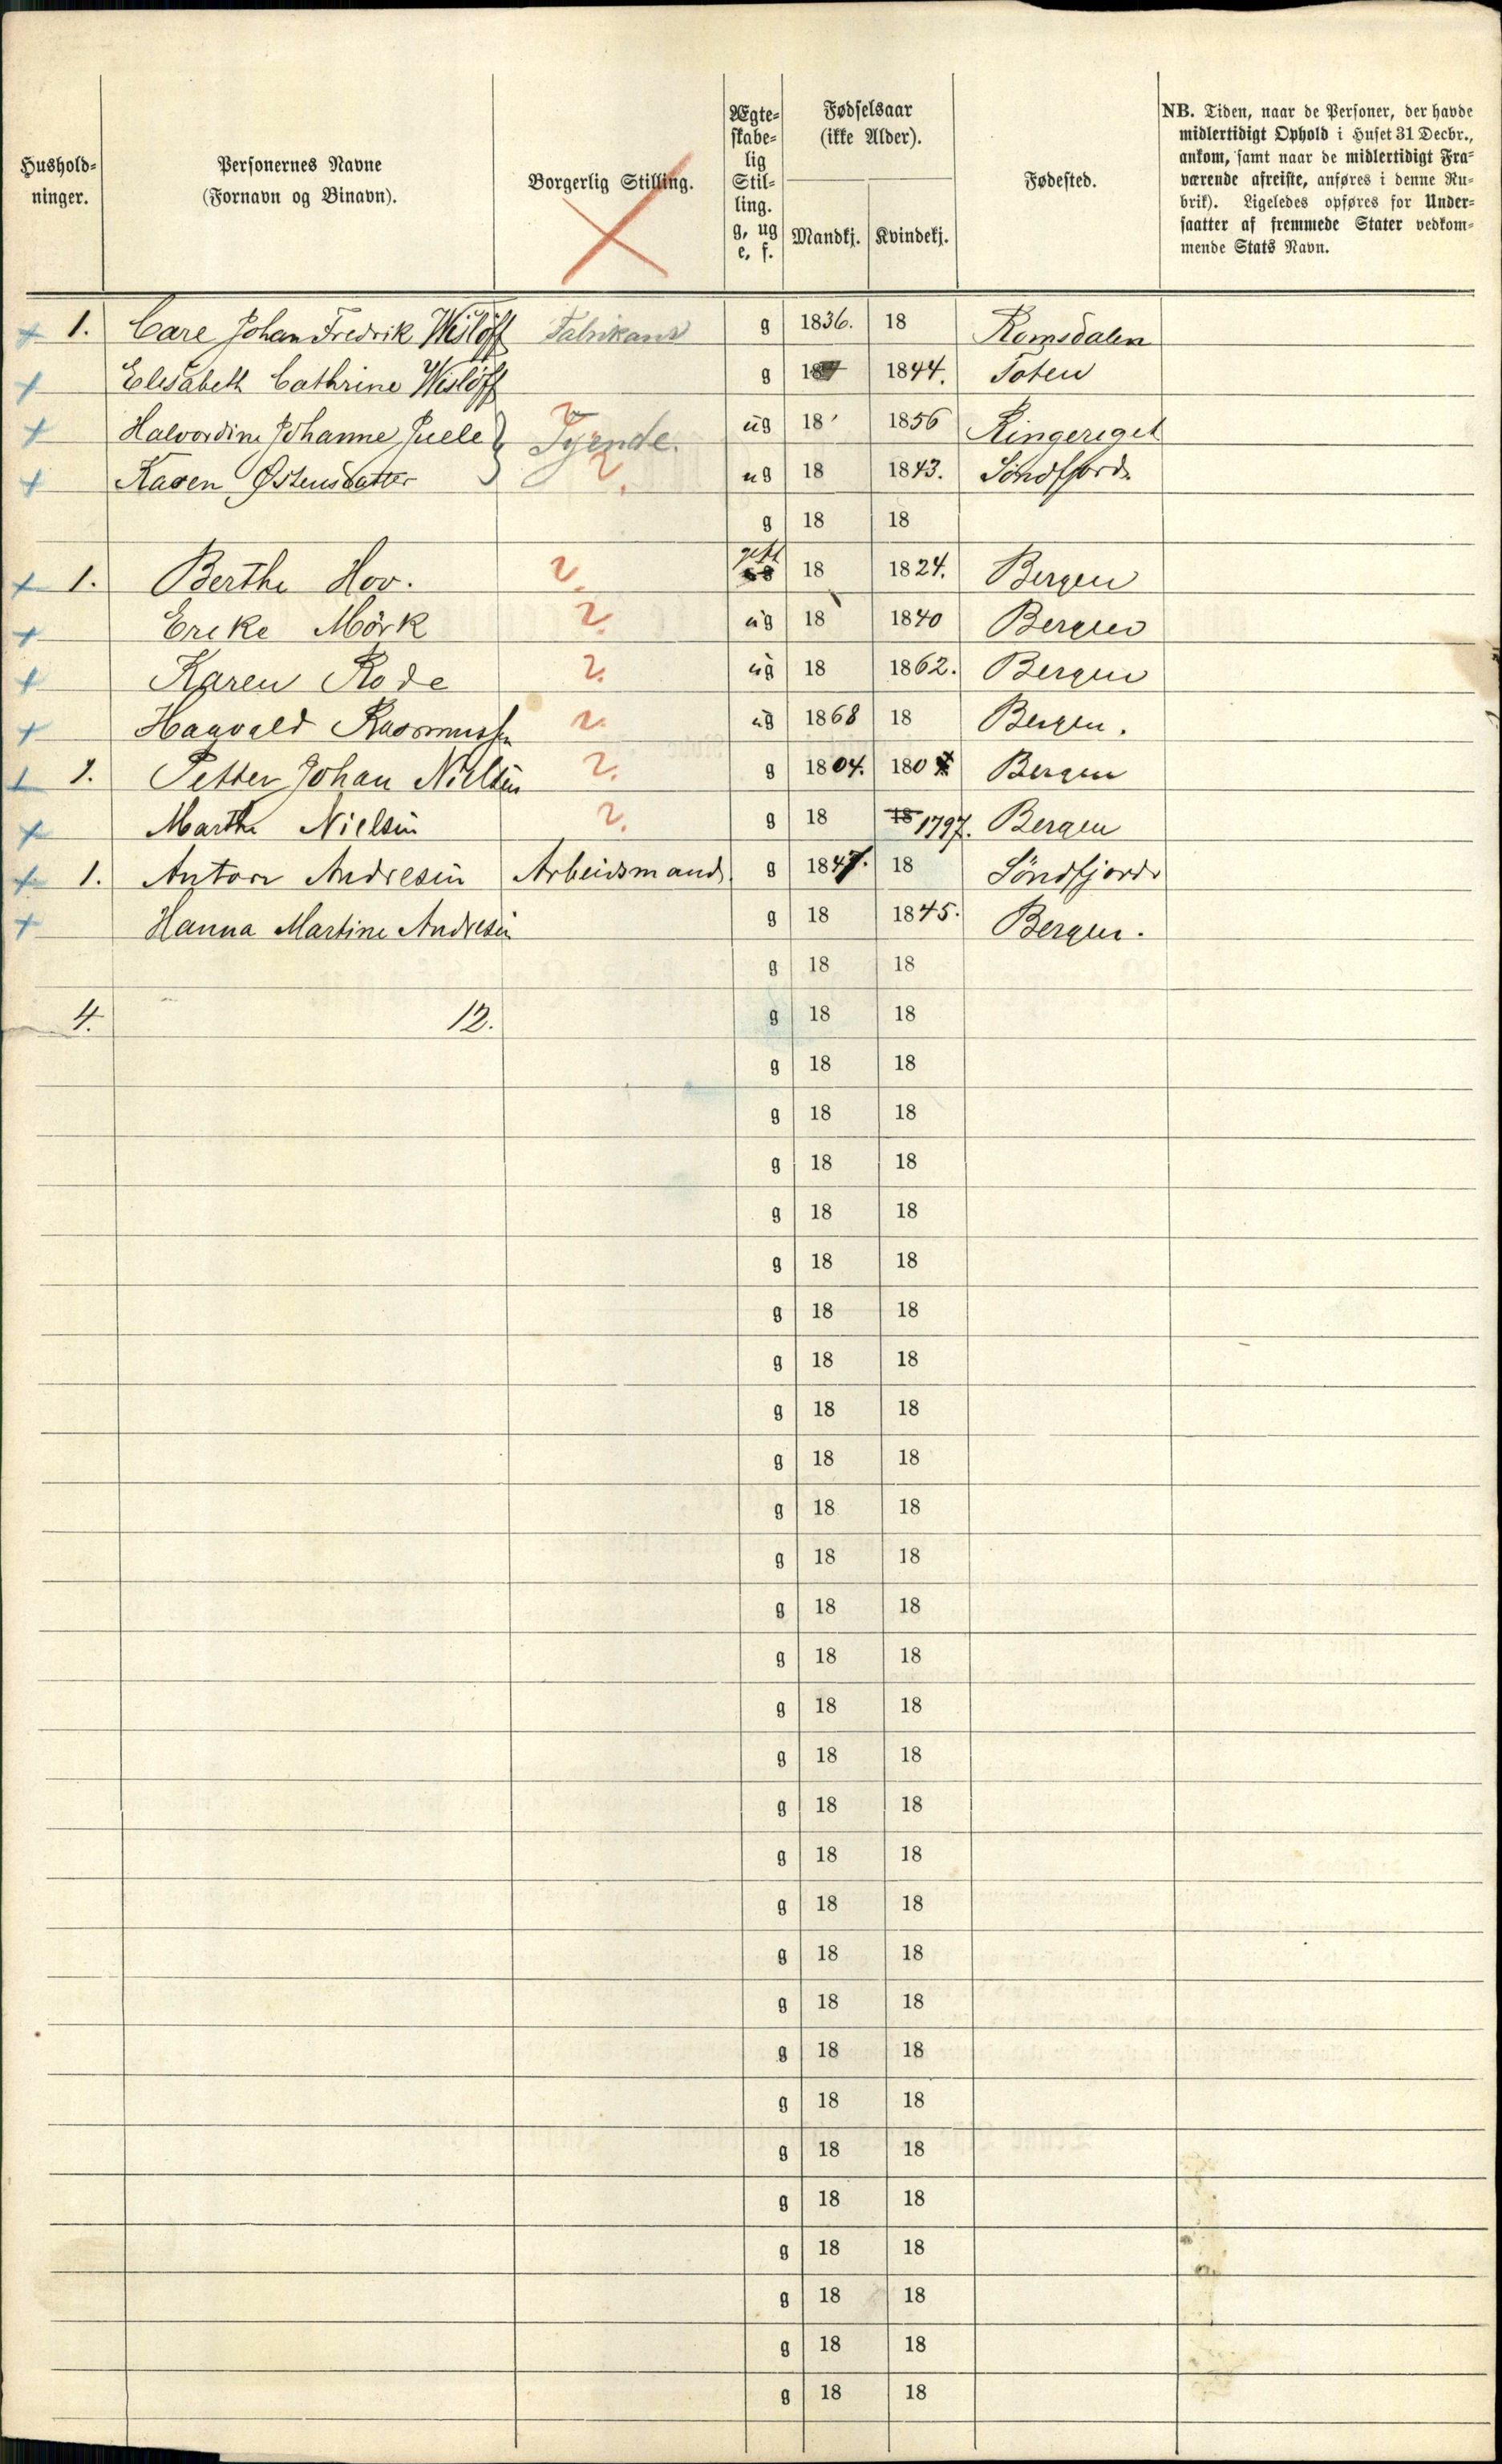 Hushold-
ninger.
Personernes Navne
(Fornavn og Binavn).
Borgerlig Stilling.
Ægte-
skabe-
lig
Stil-
ling.
g, ug
e, f.
Fødselsaar
(ikke Alder).
Mandkj. Kvindekj.
Fødested.
NB. Tiden, naar de Personer, der havde
midlertidigt Ophold i Huset 31 Decbr.,
ankom, samt naar de midlertidigt Fra-
værende afreiste, anføres i denne Ru-
brik). Ligeledes opføres for Under-
saatter af fremmede Stater vedkom-
mende Stats Navn.
+ 1. Carl Johan Fredrik Wislöff Fabrikant g 1836. 18 Romsdalen
+ Elisabeth Cathrine Wislöff g 18 1844. Toten
+ Halvordine Johanne Juell } Tjende. ? ug 18 1856 Ringeriget
+ Karen Østensdatter ? ug 18 1843. Söndfjord.
g 18 18
+ 1. Berthe Hov. ? gift 18 1824. Bergen
+ Ericke Mörk ? ug 18 1840 Bergen
+ Karen Rode ? ug 18 1862. Bergen
+ Hagvald Rasmussen ? ug 1868 18 Bergen.
+ 1. Petter Johan Nielsen ? g 1804. 180 Bergen
+ Marthe Nielsen ? g 18 18 1797. Bergen
+ 1. Anton Andresen Arbeidsmand g 1847. 18 Söndfjord
+ Hanna Martine Andresen g 18 1845. Bergen.
g 18 18
4. 12. g 18 18
g 18 18
g 18 18
g 18 18
g 18 18
g 18 18
g 18 18
g 18 18
g 18 18
g 18 18
g 18 18
g 18 18
g 18 18
g 18 18
g 18 18
g 18 18
g 18 18
g 18 18
g 18 18
g 18 18
g 18 18
g 18 18
g 18 18
g 18 18
g 18 18
g 18 18
g 18 18
g 18 18
g 18 18